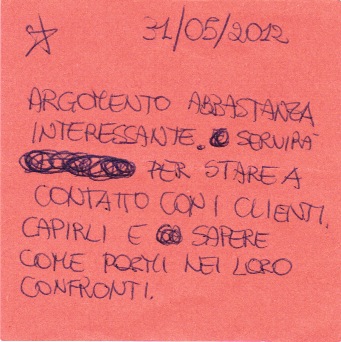 31/05/2012
ARGOMENTO ABBASTANZA
INTERESSANTE. SERVIRÀ
PER STARE A
CONTATTO CON I CLIENTI,
CAPIRLI E SAPERE
COME PORMI NEI LORO
CONFRONTI.